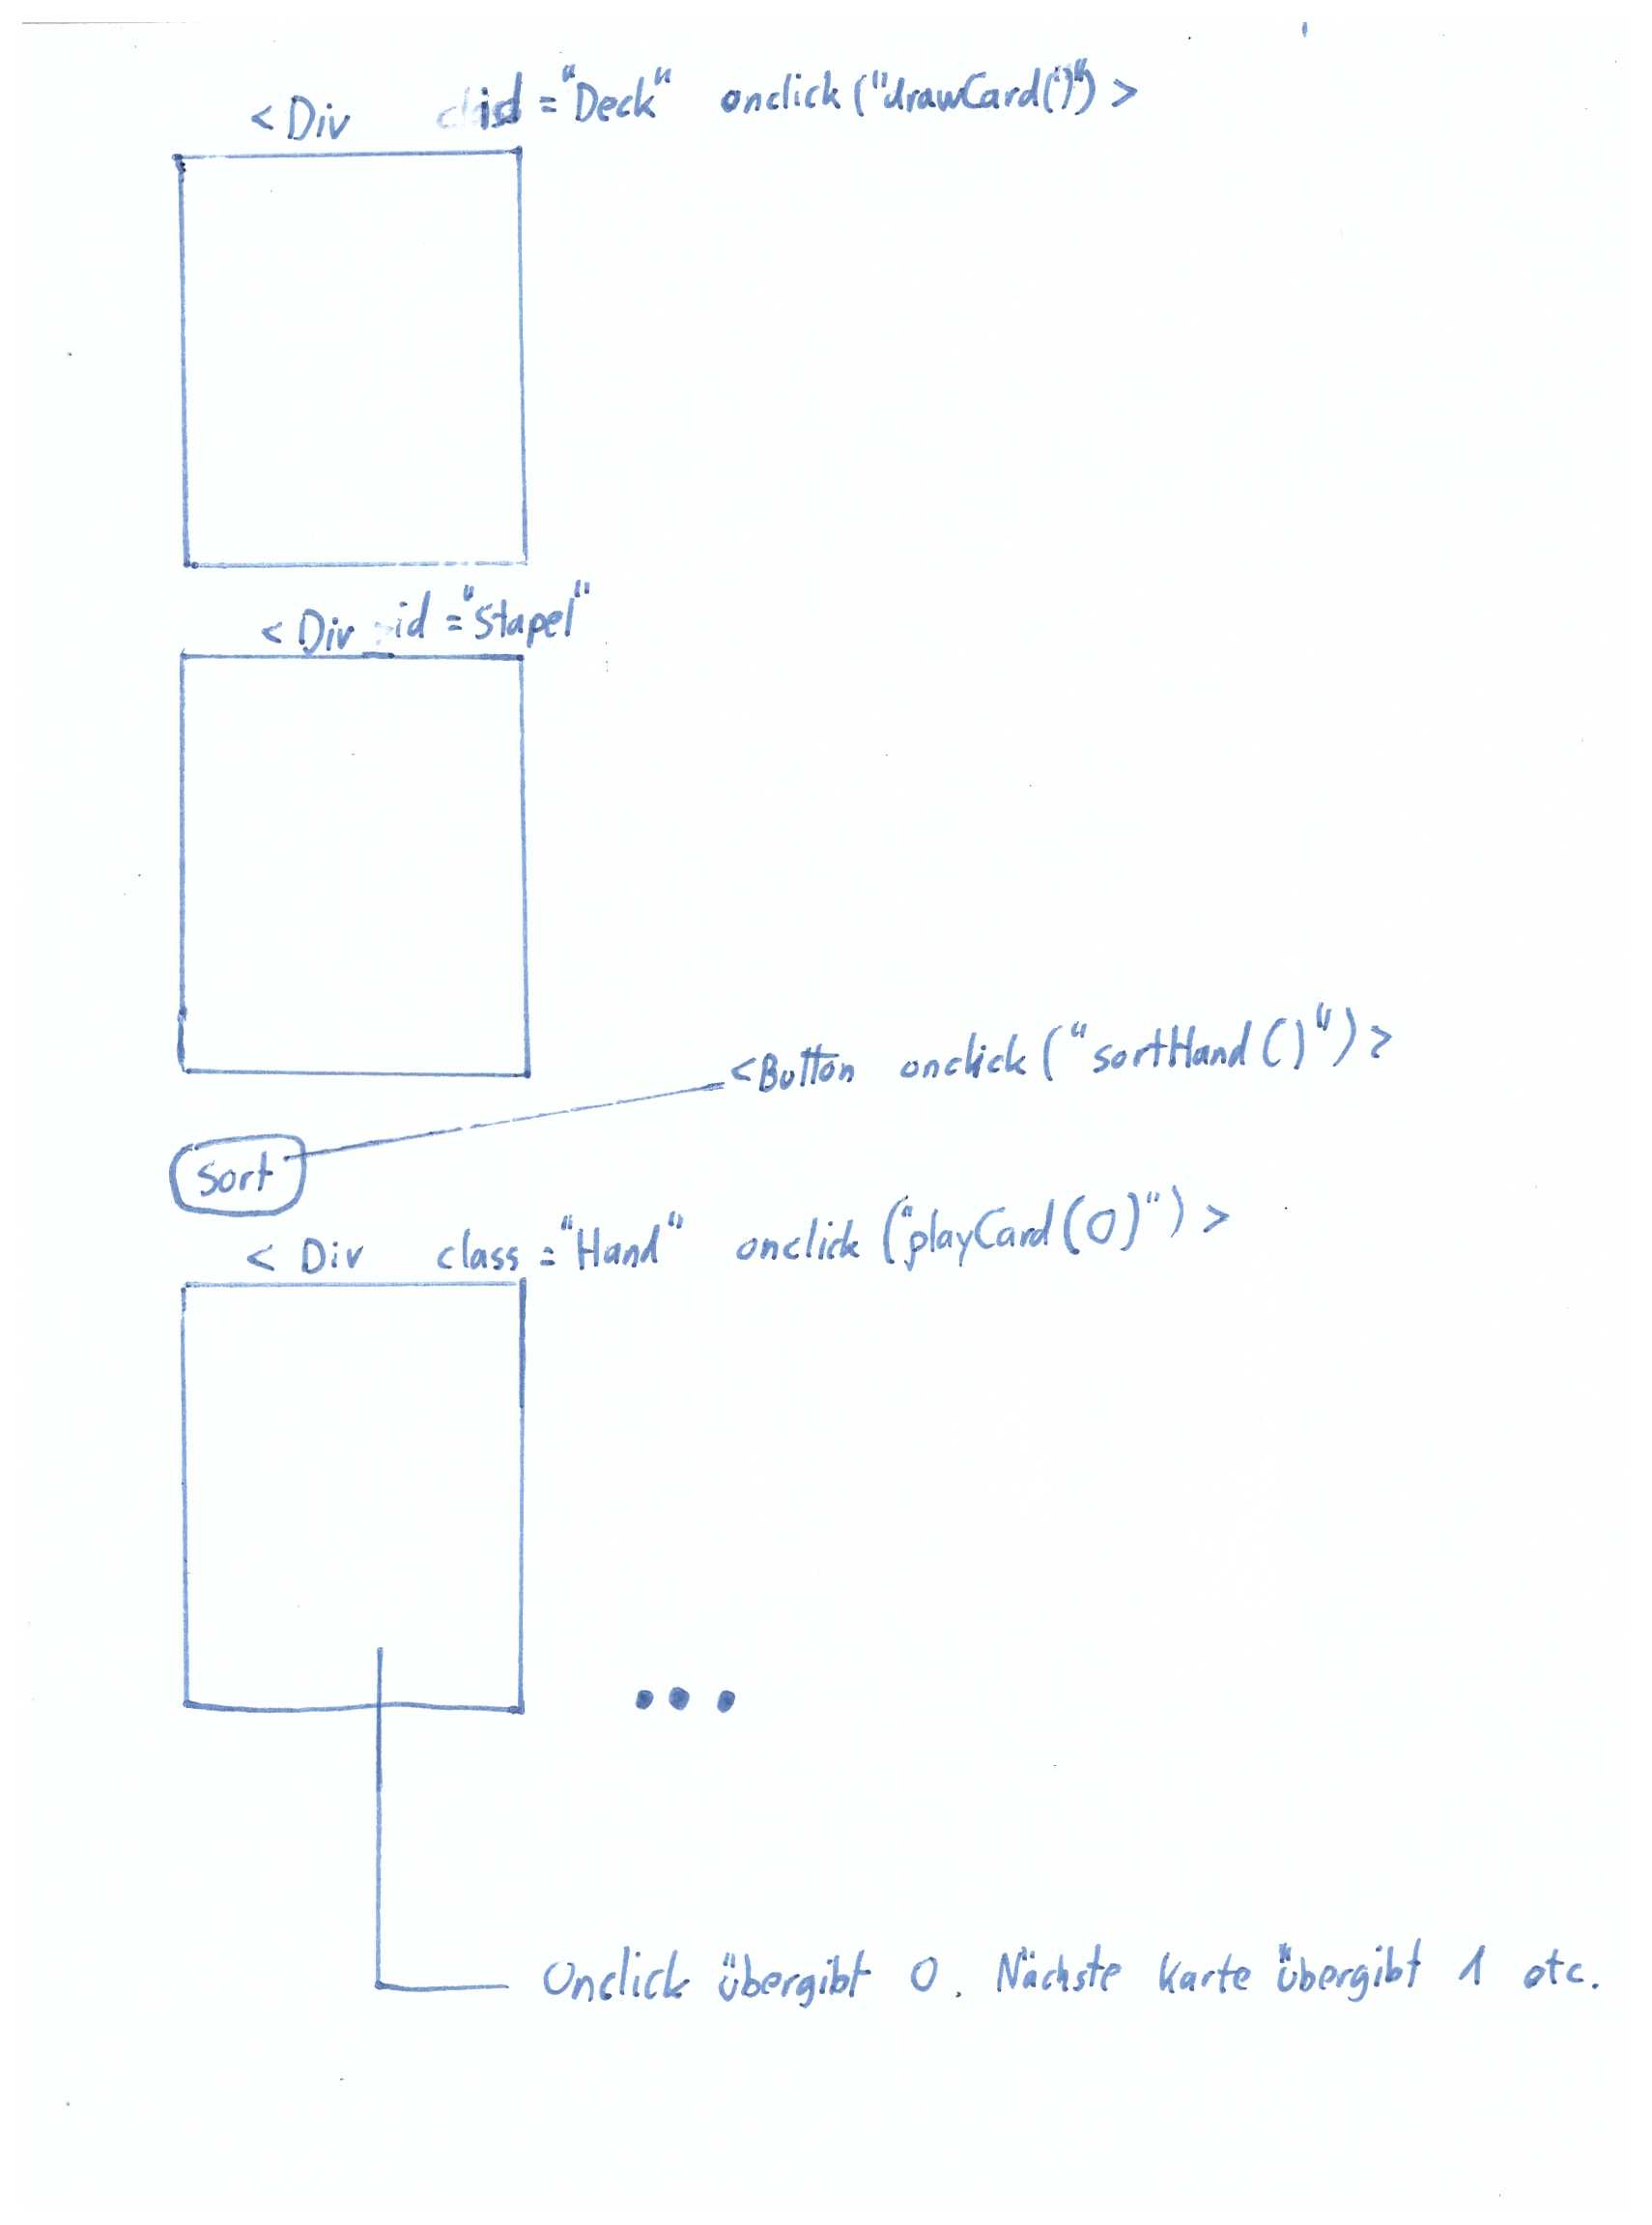 < Div id = "Deck" onclick ("drawCard()") >
< Div id = "Stapel"
<Button onclick ("sortHand()")>
Sort
< Div class = "Hand" onclick ("playCard(0)") >
...
Onclick übergibt 0. Nächste Karte übergibt 1 etc.